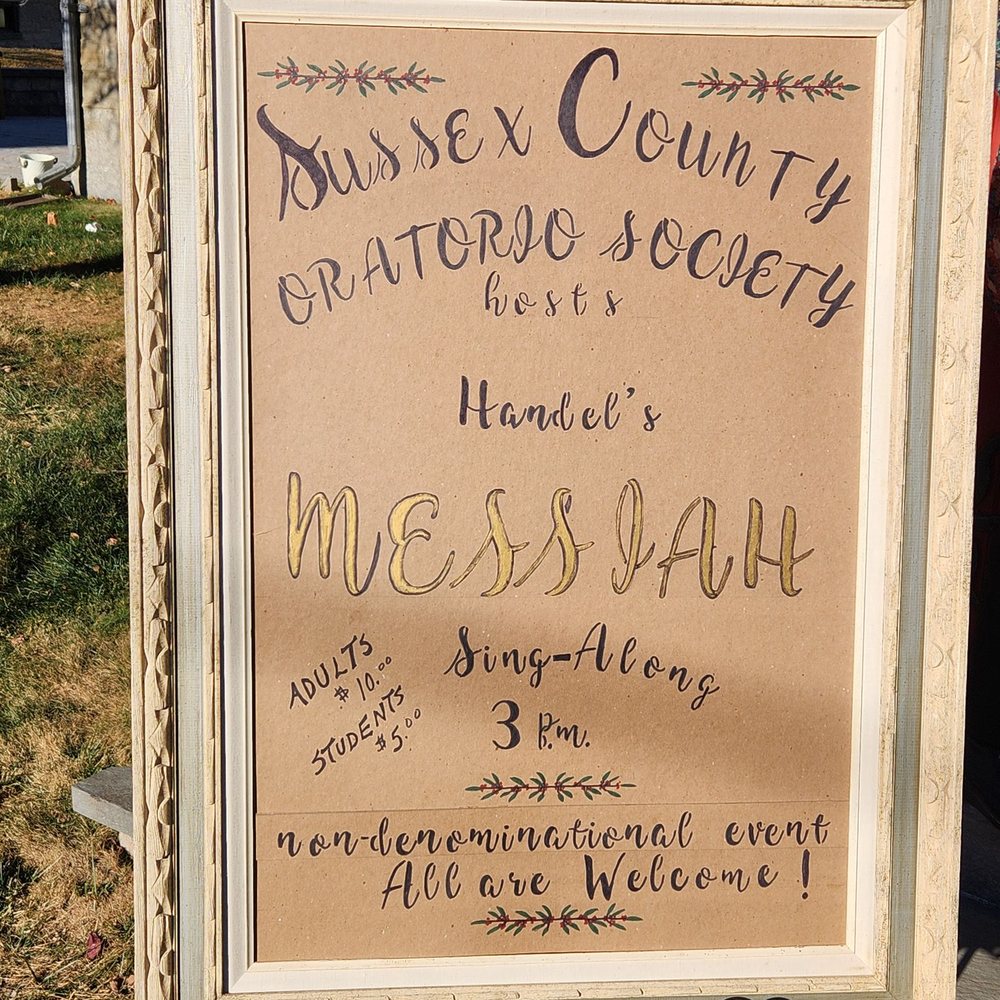 Sussex County
ORATORIO SOCIETY
hosts
Handel's
MESSIAH
Sing-Along
3 P.m.
ADULTS
$10.00
STUDENTS
$5.00
non-denominational event
All are Welcome!